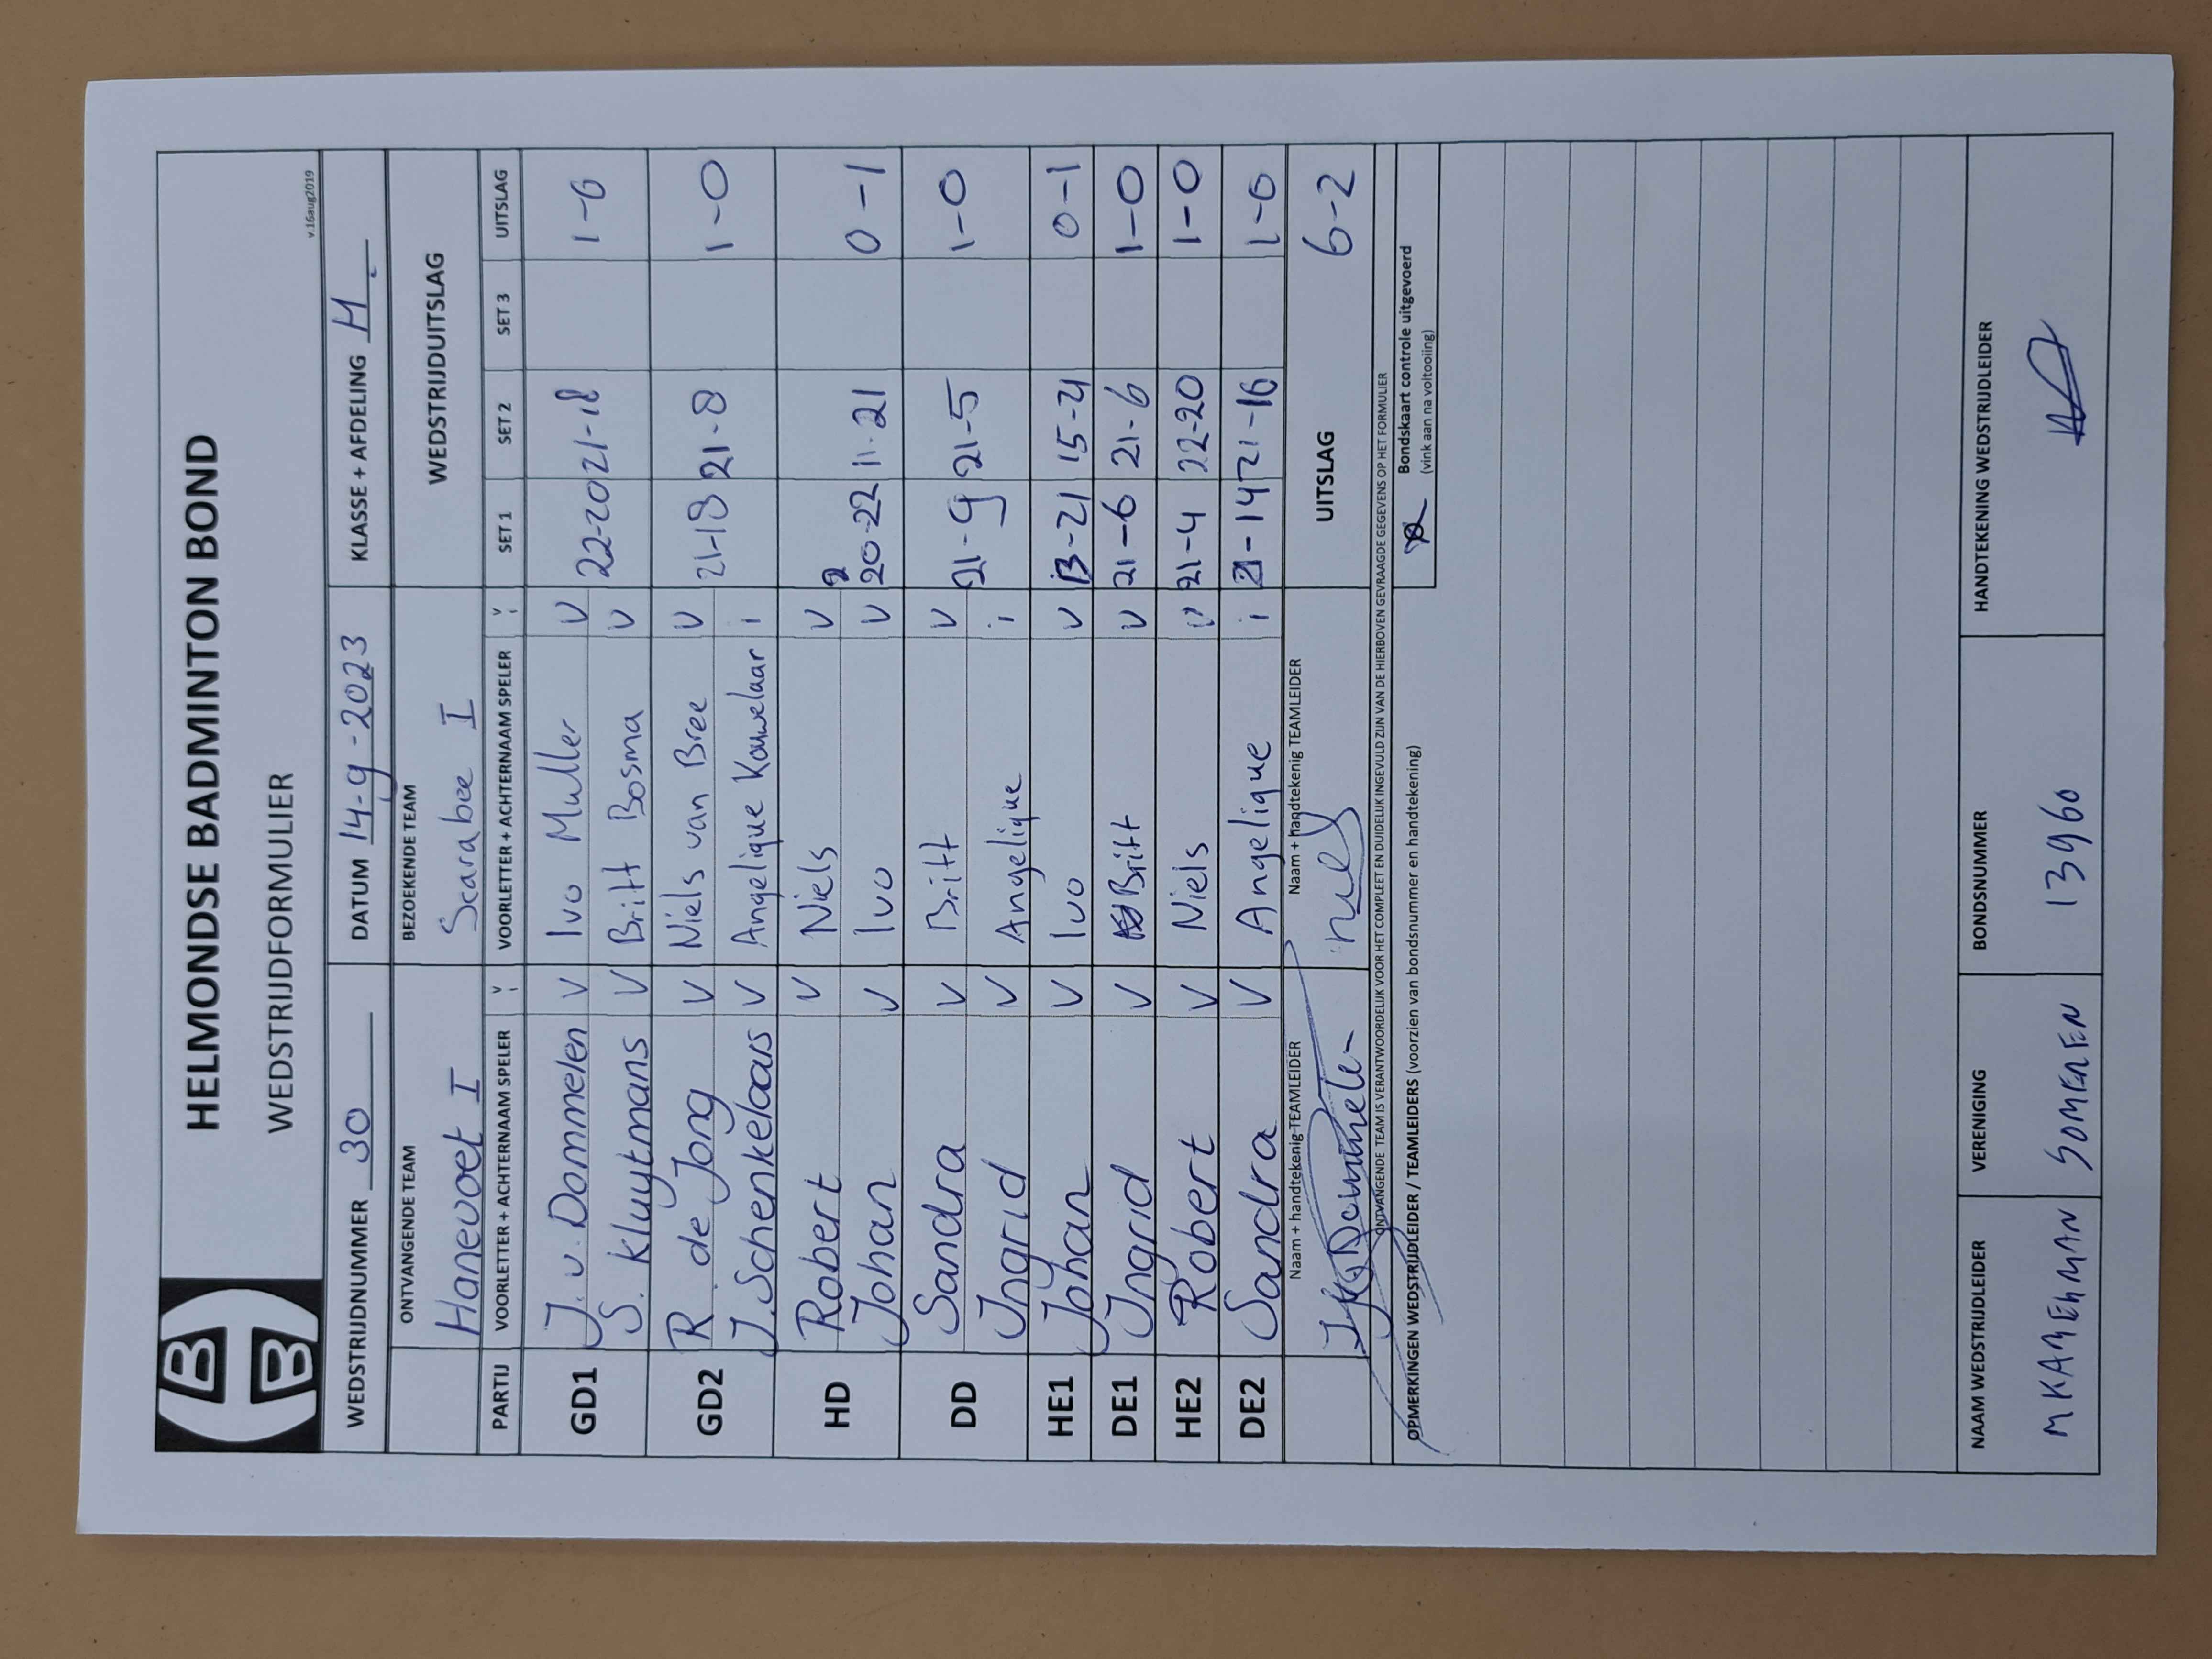 HELMONDSE BADMINTON BOND
WEDSTRIJDFORMULIER
v.16aug2019
WEDSTRIJDNUMMER 30 DATUM 14-9-2023 KLASSE + AFDELING H
ONTVANGENDE TEAM BEZOEKENDE TEAM WEDSTRIJDUITSLAG
Hanevoet I Scarabee I
PARTIJ VOORLETTER + ACHTERNAAM SPELER V I VOORLETTER + ACHTERNAAM SPELER V I SET 1 SET 2 SET 3 UITSLAG
GD1 J. v. Dommelen V Ivo Muller V 22-20 21-18 1-0
S. Kluytmans V Britt Bosma V
GD2 R. de Jong V Niels van Bree V 21-18 21-8 1-0
J. Schenkelaars V Angelique Kouwelaar i
HD Robert V Niels V 20-22 11-21 0-1
Johan V Ivo V
DD Sandra V Britt V 21-9 21-5 1-0
Ingrid V Angelique i
HE1 Johan V Ivo V 13-21 15-21 0-1
DE1 Ingrid V Britt V 21-6 21-6 1-0
HE2 Robert V Niels V 21-4 22-20 1-0
DE2 Sandra V Angelique i 21-14 21-16 1-0
Naam + handtekenig TEAMLEIDER Naam + handtekenig TEAMLEIDER UITSLAG 6-2
Dommelen
ONTVANGENDE TEAM IS VERANTWOORDELIJK VOOR HET COMPLEET EN DUIDELIJK INGEVULD ZIJN VAN DE HIERBOVEN GEVRAAGDE GEGEVENS OP HET FORMULIER
OPMERKINGEN WEDSTRIJDLEIDER / TEAMLEIDERS (voorzien van bondsnummer en handtekening) Bondskaart controle uitgevoerd
(vink aan na voltooiing)
NAAM WEDSTRIJDLEIDER VERENIGING BONDSNUMMER HANDTEKENING WEDSTRIJDLEIDER
M KAMEHMAN SOMEREN 13960